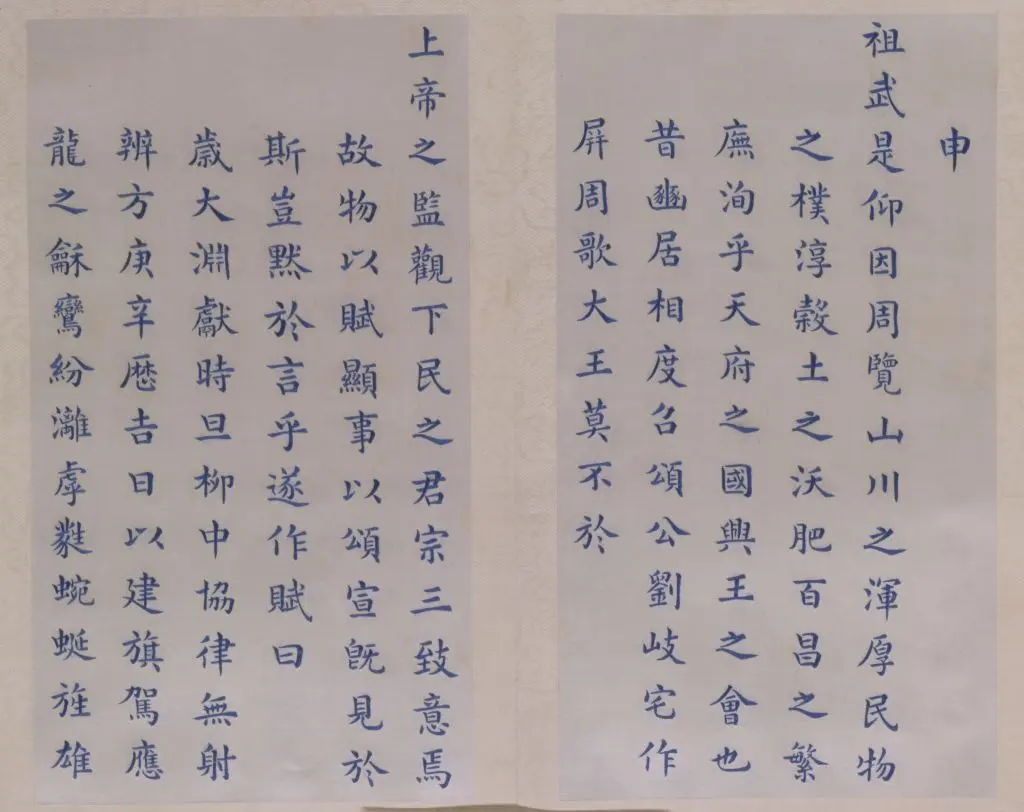 申
祖武是仰因周覽山川之渾厚民物
之樸淳穀土之沃肥百昌之繁
廡洵乎天府之國興王之會也
昔豳居相度召頌公劉岐宅作
屏周歌大王莫不於
上帝之監觀下民之君宗三致意焉
故物以賦顯事以頌宣旣見於
斯豈默於言乎遂作賦曰
歲大淵獻時旦柳中協律無射
辨方庚辛厯吉日以建旗駕應
龍之龢鸞紛灕虖蕤蜿蜒旌雄